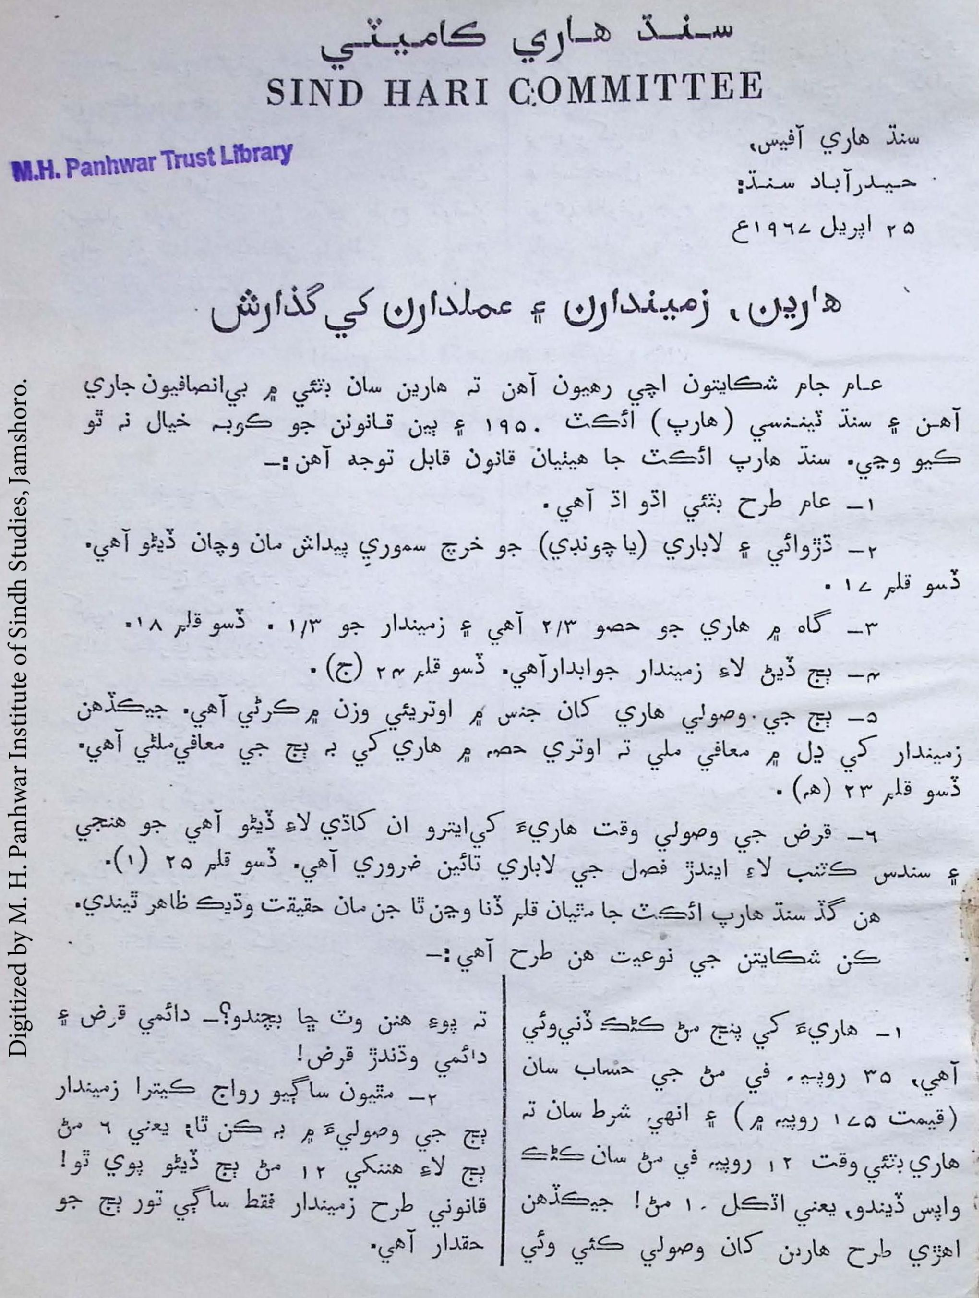 سنڌ هاري ڪاميٽي
SIND HARI COMMITTEE
M.H. Panhwar Trust Library
سنڌ هاري آفيس،
حيدرآباد سنڌ:
۲۵ اپريل ۱۹۶۷ع
هارين، زميندارن ۽ عملدارن کي گذارش
عام جام شڪايتون اچي رهيون آهن تہ هارين سان بٽئي ۾ بي‌انصافيون جاري
آهن ۽ سنڌ ٽيننسي (هارپ) ائڪٽ ۱۹۵۰ ۽ ٻين قانونن جو ڪوبہ خيال نہ ٿو
ڪيو وڃي. سنڌ هارپ ائڪٽ جا هيٺيان قانون قابل توجه آهن:—
۱— عام طرح بٽئي اڌو اڌ آهي.
۲— ڌڙوائي ۽ لاباري (يا چونڊي) جو خرچ سموري پيداش مان وچان ڏيڻو آهي.
ڏسو قلم ۱۷ .
۳— گاه ۾ هاري جو حصو ۲/۳ آهي ۽ زميندار جو ۱/۳ . ڏسو قلم ۱۸.
۴— ٻج ڏيڻ لاءِ زميندار جوابدارآهي. ڏسو قلم ۲۴ (ج) .
۵— ٻج جي وصولي هاري کان جنس ۾ اوتريئي وزن ۾ ڪرڻي آهي. جيڪڏهن
زميندار کي ڍل ۾ معافي ملي تہ اوتري حصہ ۾ هاري کي بہ ٻج جي معافي‌ملڻي آهي.
ڏسو قلم ۲۳ (هہ) .
۶— قرض جي وصولي وقت هاريءَ کي‌ايترو ان کاڌي لاءِ ڏيڻو آهي جو هنجي
۽ سندس ڪٽنب لاءِ ايندڙ فصل جي لاباري تائين ضروري آهي. ڏسو قلم ۲۵ (۱).
هن گڏ سنڌ هارپ ائڪٽ جا مٿيان قلم ڏنا وڃن ٿا جن مان حقيقت وڌيڪ ظاهر ٿيندي.
ڪن شڪايتن جي نوعيت هن طرح آهي:—
۱— هاريءَ کي پنج مڻ ڪڻڪ ڏني‌وئي
آهي، ۳۵ روپيہ في مڻ جي حساب سان
(قيمت ۱۷۵ روپيہ ۾) ۽ انهي شرط سان تہ
هاري بٽئي وقت ۱۲ روپيہ في مڻ سان ڪڻڪ
واپس ڏيندو، يعني اٽڪل ۱۰ مڻ! جيڪڏهن
اهڙي طرح هارين کان وصولي ڪئي وئي
تہ پوءِ هنن وٽ ڇا بچندو؟— دائمي قرض ۽
دائمي وڌندڙ قرض!
۲— مٿيون ساڳيو رواج ڪيترا زميندار
ٻج جي وصوليءَ ۾ بہ ڪن ٿا؛ يعني ۶ مڻ
ٻج لاءِ هننکي ۱۲ مڻ ٻج ڏيڻو پوي ٿو!
قانوني طرح زميندار فقط ساڳي تور ٻج جو
حقدار آهي.
Digitized by M. H. Panhwar Institute of Sindh Studies, Jamshoro.